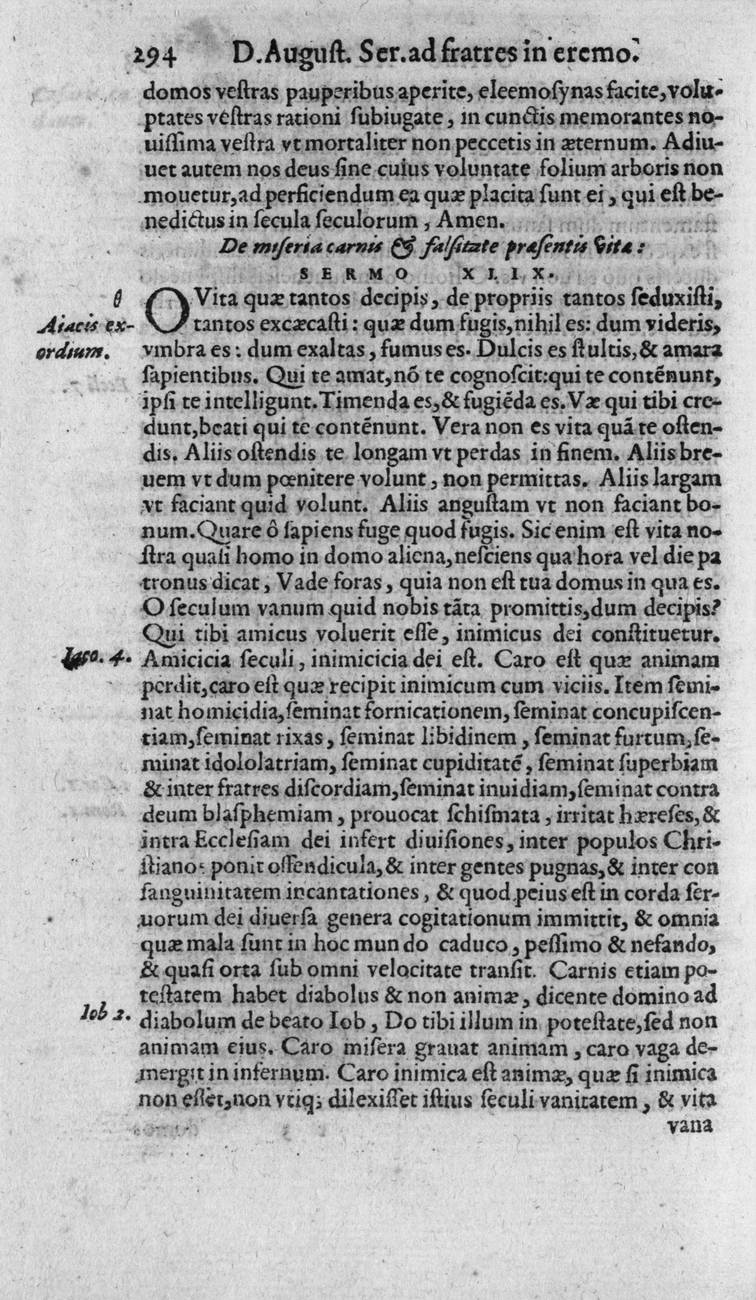 294 D. August. Ser. ad fratres in eremo.
domos vestras pauperibus aperite, eleemosynas facite, volu-
ptates vestras rationi subiugate, in cunctis memorantes no-
uissima vestra vt mortaliter non peccetis in æternum. Adiu-
uet autem nos deus sine cuius voluntate folium arboris non
mouetur, ad perficiendum ea quæ placita sunt ei, qui est be-
nedictus in secula seculorum, Amen.
De miseria carnis & falsitate præsentis vitæ:
SERMO XLIX.
O Vita quæ tantos decipis, de propriis tantos seduxisti,
Aiacis ex-
ordium.
tantos excæcasti: quæ dum fugis, nihil es: dum videris,
vmbra es: dum exaltas, fumus es. Dulcis es stultis, & amara
sapientibus. Qui te amat, nō te cognoscit: qui te contēnunt,
ipsi te intelligunt. Timenda es, & fugiēda es. Væ qui tibi cre-
dunt, beati qui te contēnunt. Vera non es vita quā te osten-
dis. Aliis ostendis te longam vt perdas in finem. Aliis bre-
uem vt dum pœnitere volunt, non permittas. Aliis largam
vt faciant quid volunt. Aliis angustam vt non faciant bo-
num. Quare ô sapiens fuge quod fugis. Sic enim est vita no-
stra quasi homo in domo aliena, nesciens qua hora vel die pa
tronus dicat, Vade foras, quia non est tua domus in qua es.
O seculum vanum quid nobis tāta promittis, dum decipis?
Qui tibi amicus voluerit esse, inimicus dei constituetur.
Iaco. 4.
Amicicia seculi, inimicicia dei est. Caro est quæ animam
perdit, caro est quæ recipit inimicum cum viciis. Item semi-
nat homicidia, seminat fornicationem, seminat concupiscen-
tiam, seminat rixas, seminat libidinem, seminat furtum, se-
minat idololatriam, seminat cupiditatē, seminat superbiam
& inter fratres discordiam, seminat inuidiam, seminat contra
deum blasphemiam, prouocat schismata, irritat hæreses, &
intra Ecclesiam dei infert diuisiones, inter populos Chri-
stianos ponit offendicula, & inter gentes pugnas, & inter con
sanguinitatem incantationes, & quod peius est in corda ser-
uorum dei diuersa genera cogitationum immittit, & omnia
quæ mala sunt in hoc mundo caduco, pessimo & nefando,
& quasi orta sub omni velocitate transit. Carnis etiam po-
testatem habet diabolus & non animæ, dicente domino ad
Iob 2.
diabolum de beato Iob, Do tibi illum in potestate, sed non
animam eius. Caro misera grauat animam, caro vaga de-
mergit in infernum. Caro inimica est animæ, quæ si inimica
non esset, non vtiq; dilexisset istius seculi vanitatem, & vita
vana